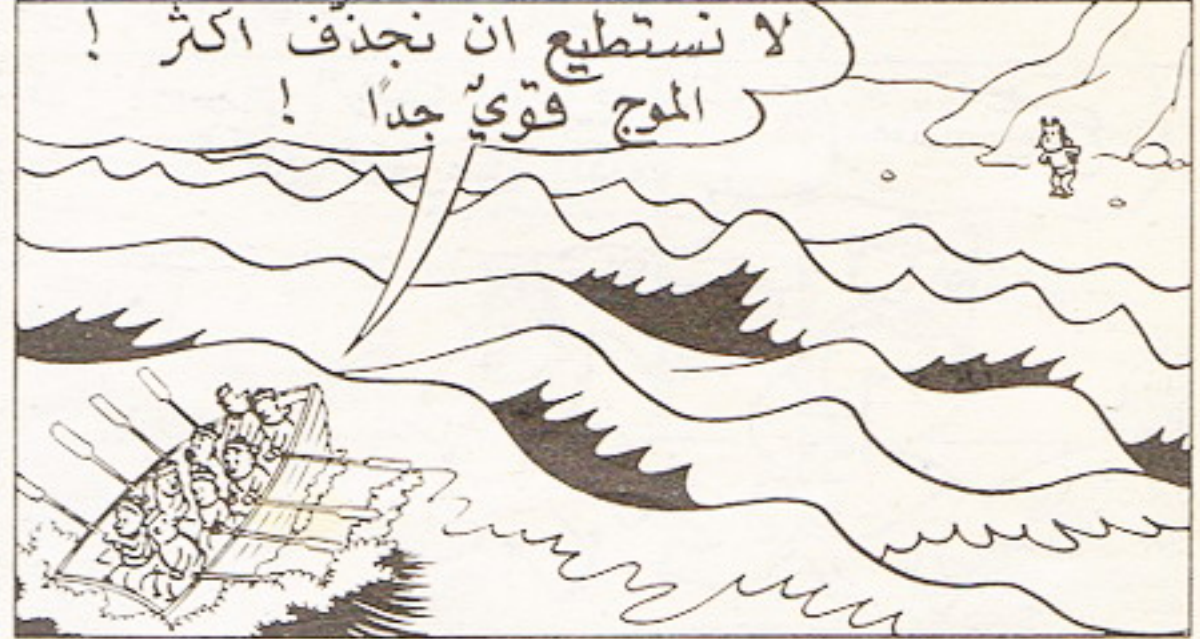 لا نستطيع ان نجذّف اكثر !
الموج قويّ جداً !